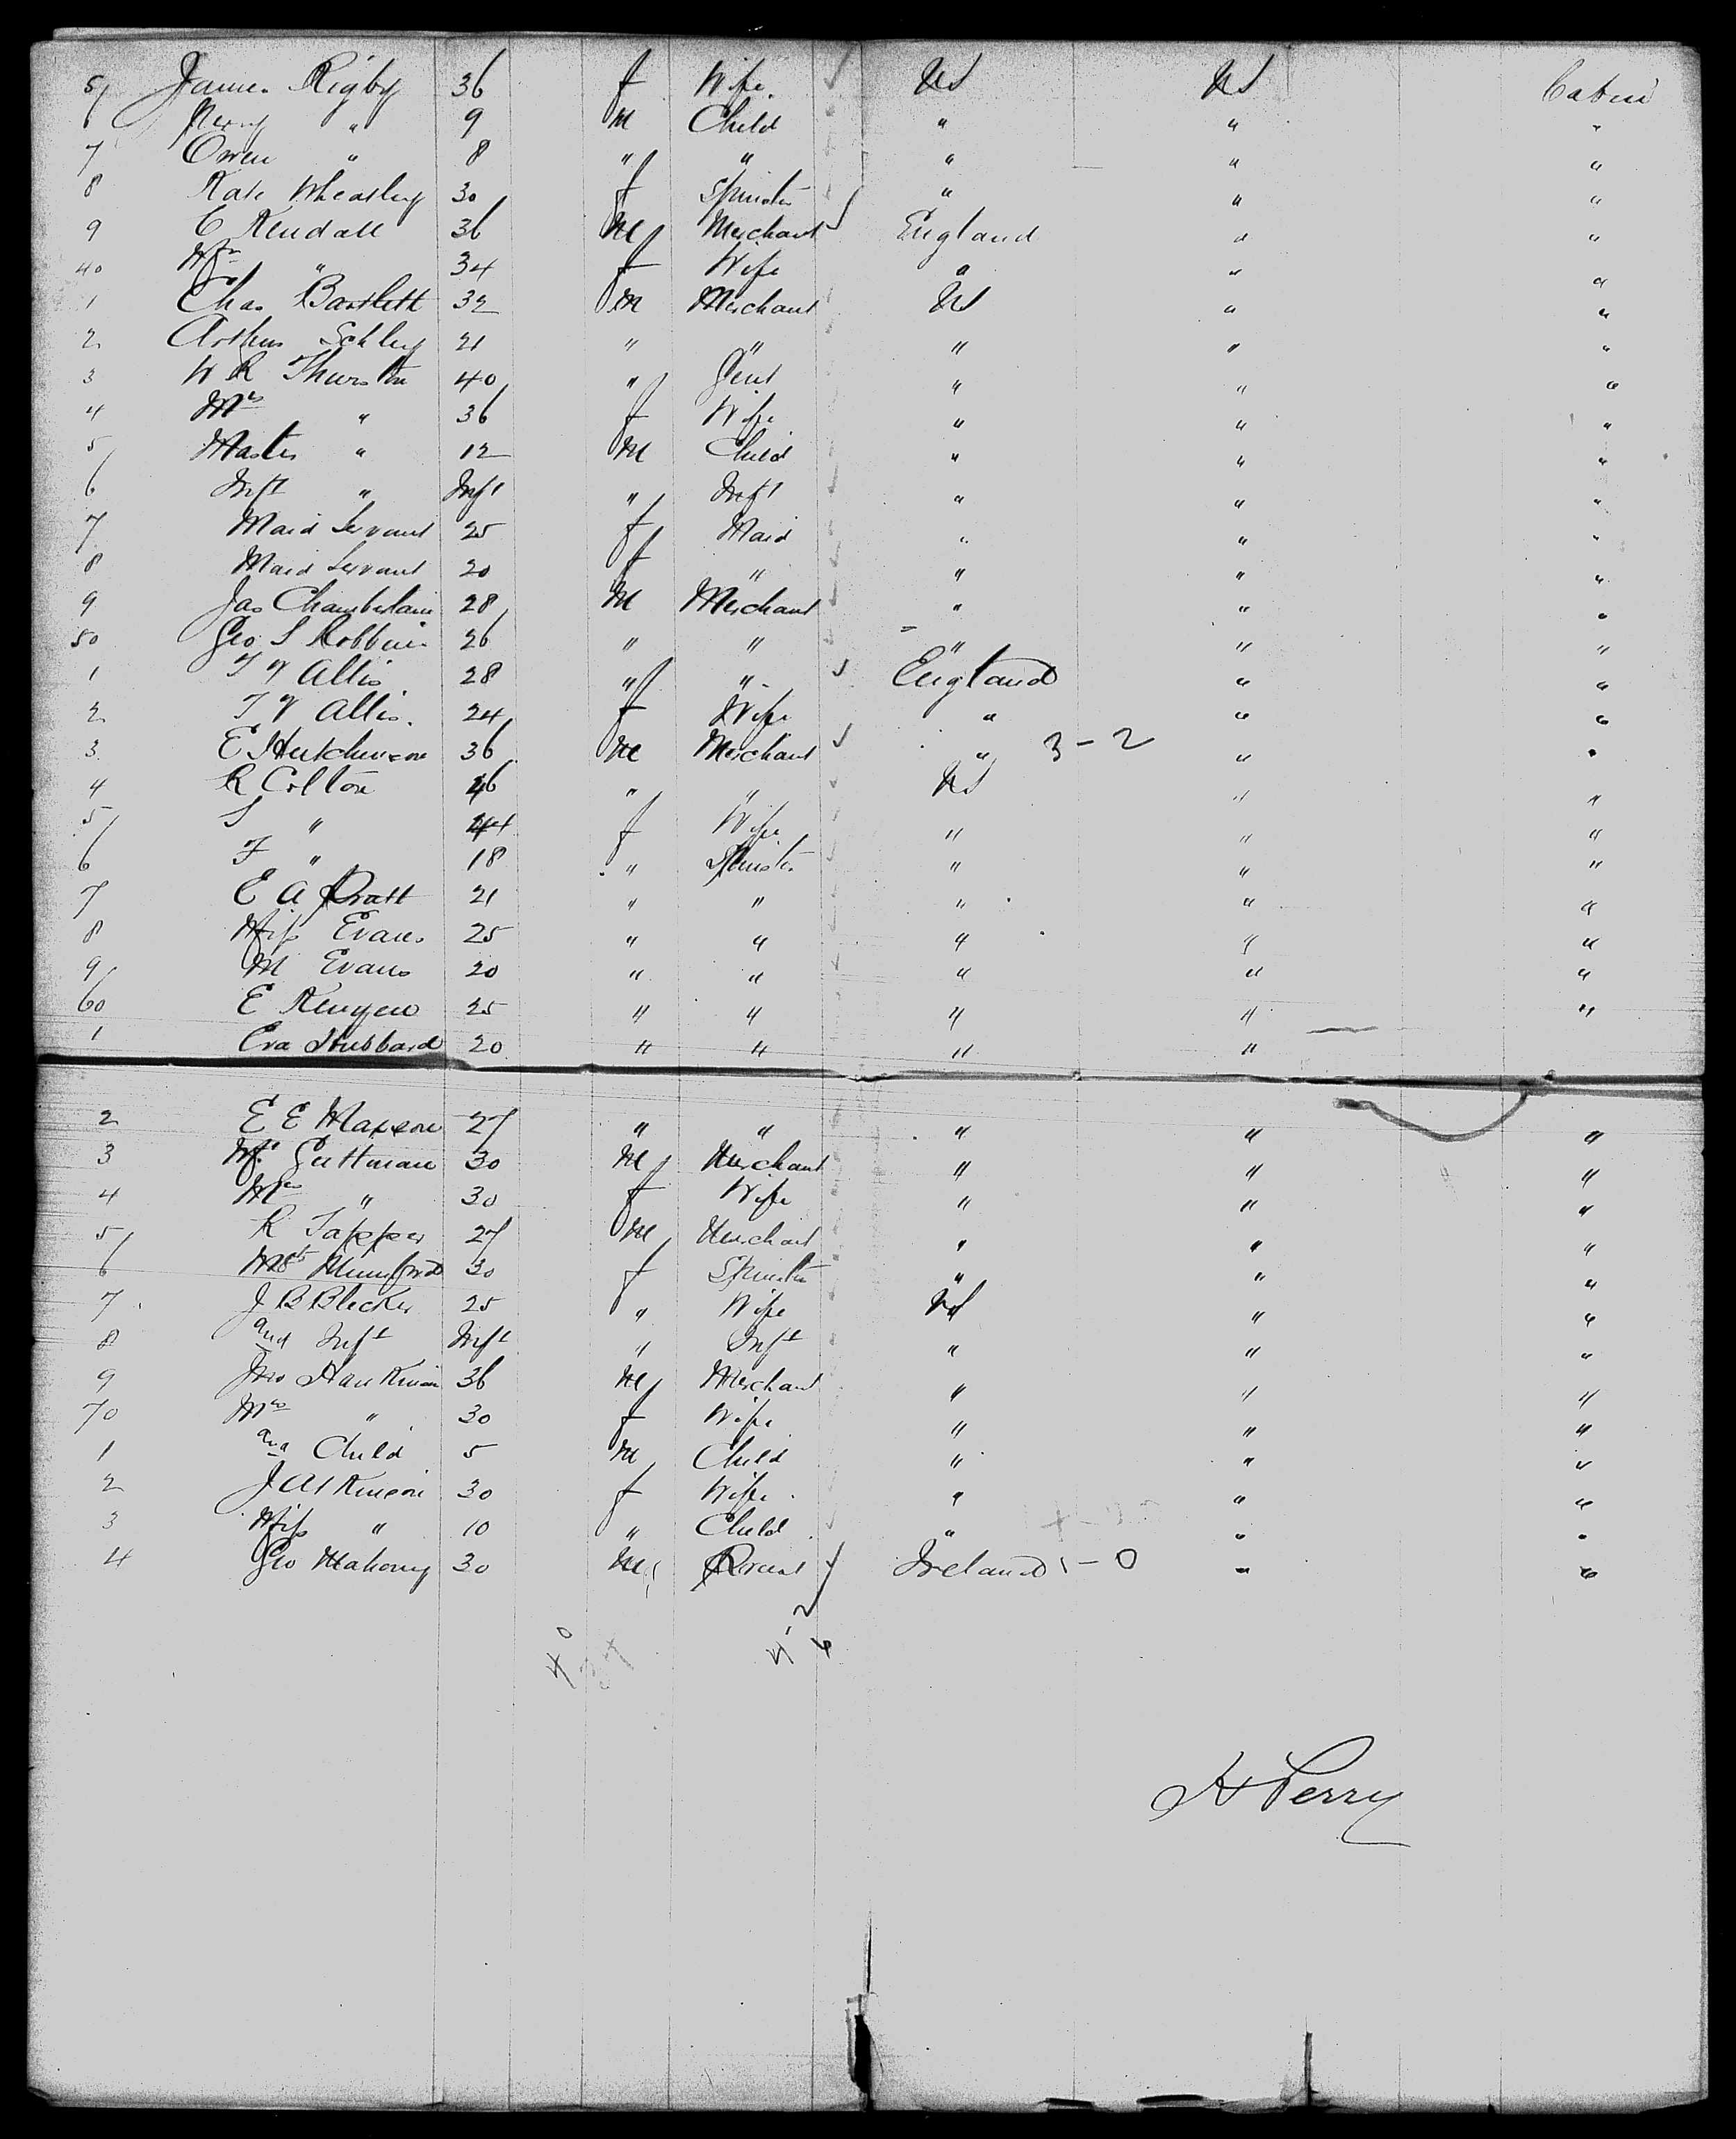 5 James Rigby 36 f Wife. US US Cabin
6 " 9 M Child " " "
7 Owen " 8 " " " " "
8 Kate Wheatley 30 f Spinster " " "
9 C Kendall 36 M Merchant England " "
40 Mrs " 34 f Wife " " "
1 Chas Bartlett 32 M Merchant US " "
2 Arthur Schley 21 " " " " "
3 W R Thurston 40 " Gent " " "
4 Mrs " 36 f Wife " " "
5 Master " 12 M Child " " "
6 Inft " Inft " Inft " " "
7 Maid Servant 25 f Maid " " "
8 Maid Servant 20 f " " " "
9 Jas Chamberlain 28 M Merchant " " "
50 Geo S Robbins 26 " " " " "
1 T W Allis 28 " " England " "
2 T W Allis. 24 f Wife " " "
3 E Hutchinson 36 M Merchant " 3-2 " "
4 R Colton 46 " " US " "
5 S " 44 f Wife " " "
6 F " 18 " Spinster " " "
7 E A Pratt 21 " " " " "
8 Miss Evans 25 " " " " "
9 M Evans 20 " " " " "
60 E Kenyon 25 " " " " "
1 Eva Hubbard 20 " " " "
2 E E Maxson 27 " " " " "
3 Mr Guttman 30 M Merchant " " "
4 Mrs " 30 f Wife " " "
5 R Tapper 27 M Merchant " " "
6 Mumford 30 f Spinster " " "
7 J B Blecker 25 " Wife US " "
8 and Inft Inft " Inft " " "
9 Jno Hankinson 36 M Merchant " " "
70 Mrs " 30 f Wife " " "
1 and Child 5 M Child " " "
2 J Atkinson 30 f Wife " " "
3 Miss " 10 " Child " " "
4 Geo Mahony 30 M Priest Ireland 1-0 " "
H Perry